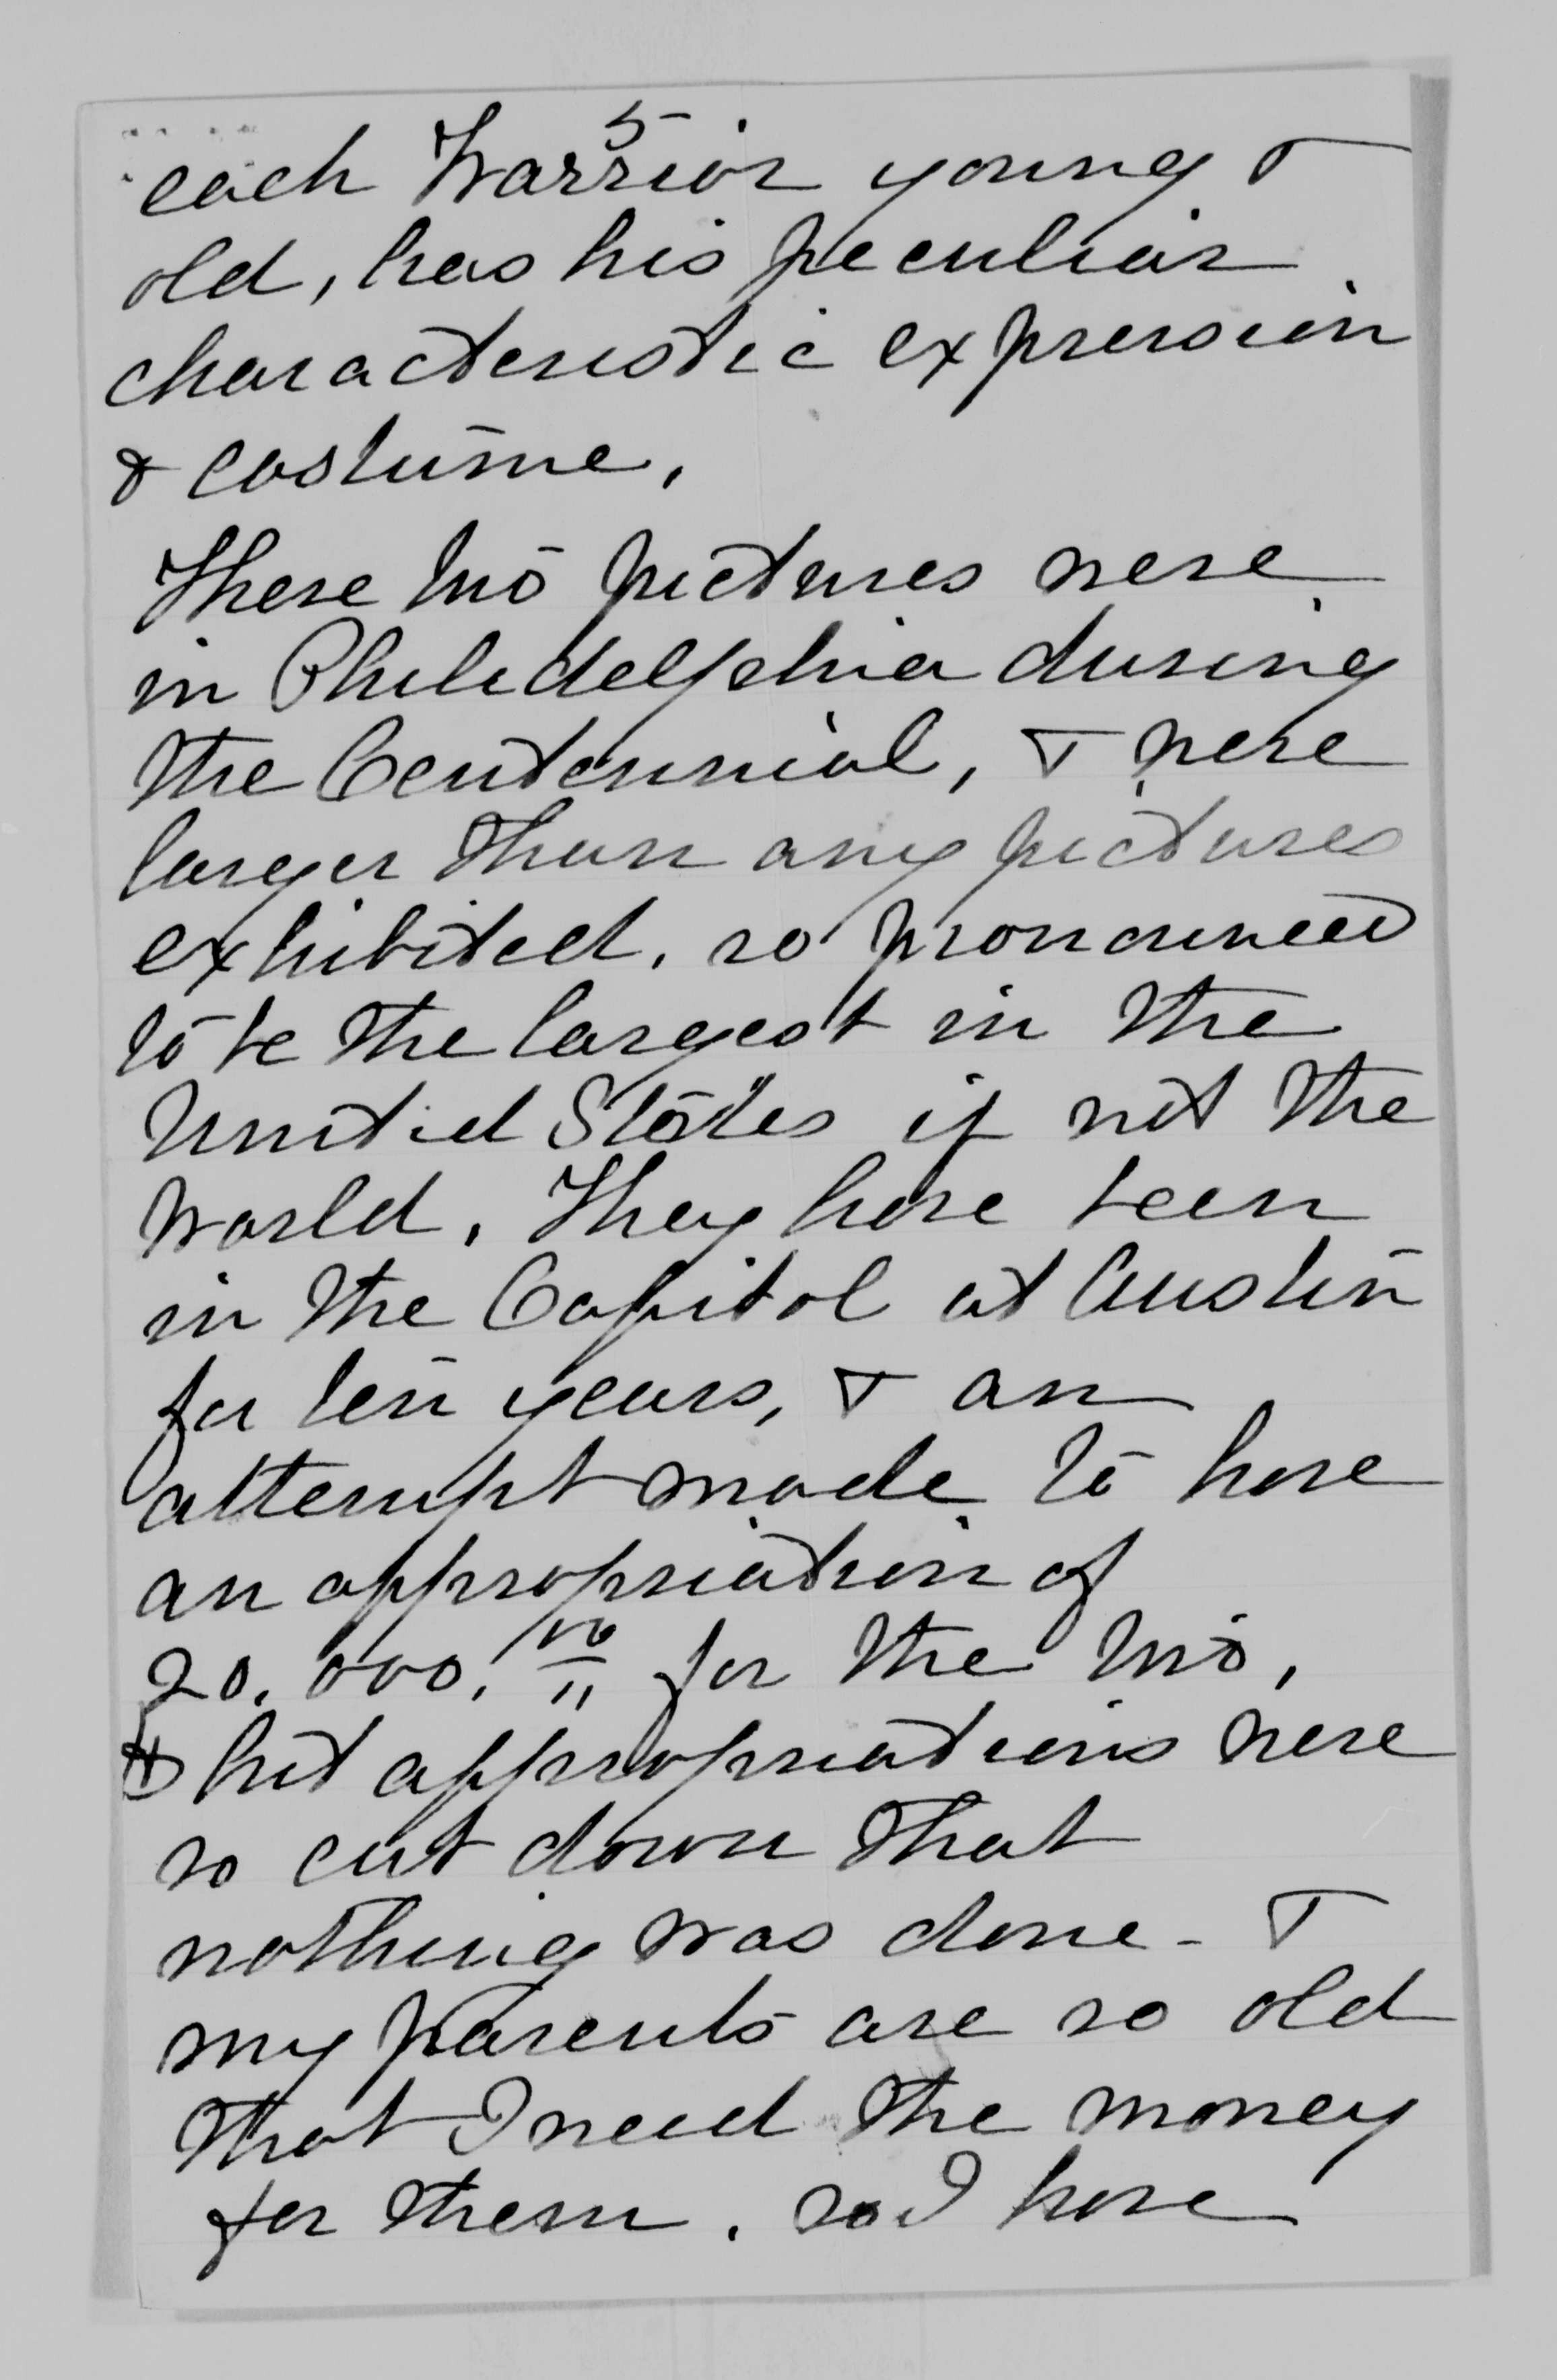 5
each Warrior young &
old, has his peculiar
characteristic expression
& costume,
These two pictures were
in Philidelphia during
the Centennial, & were
larger than any pictures
exhibited, so pronounced
to be the largest in the
United States if not the
World, They have been
in the Capitol at Austin
for ten years, & an
attempt made to have
an appropriation of
20,000,00 for the two,
& but appropriations were
so cut down that
nothing was done - &
my parents are so old
that I need the money
for them, so I have